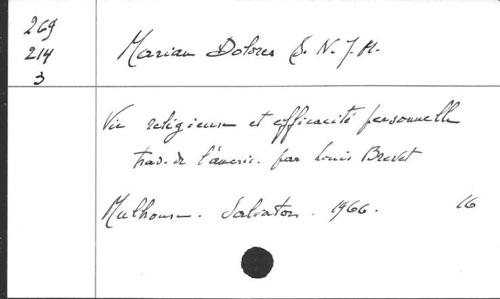 269
214
3
Marian Dolores S. N. J. M.
Vie religieuse et efficacité personnelle
trad. de l'améric. par Louis Brevet
Mulhouse. Salvator. 1966. 16